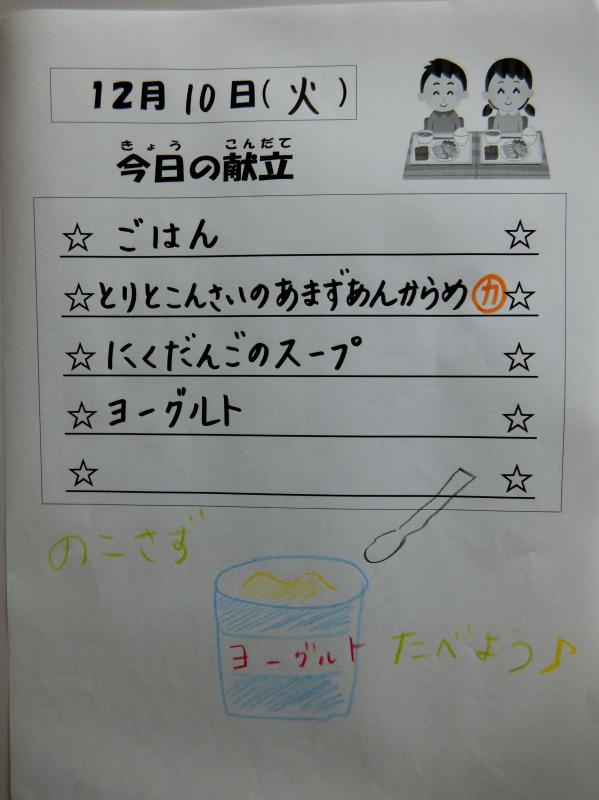 12月10日(火)
きょう こんだて
今日の献立
☆ ごはん ☆
☆とりとこんさいのあまずあんからめ㋕☆
☆ にくだんごのスープ ☆
☆ ヨーグルト ☆
☆ ☆
のこさず
ヨーグルト
たべよう♪